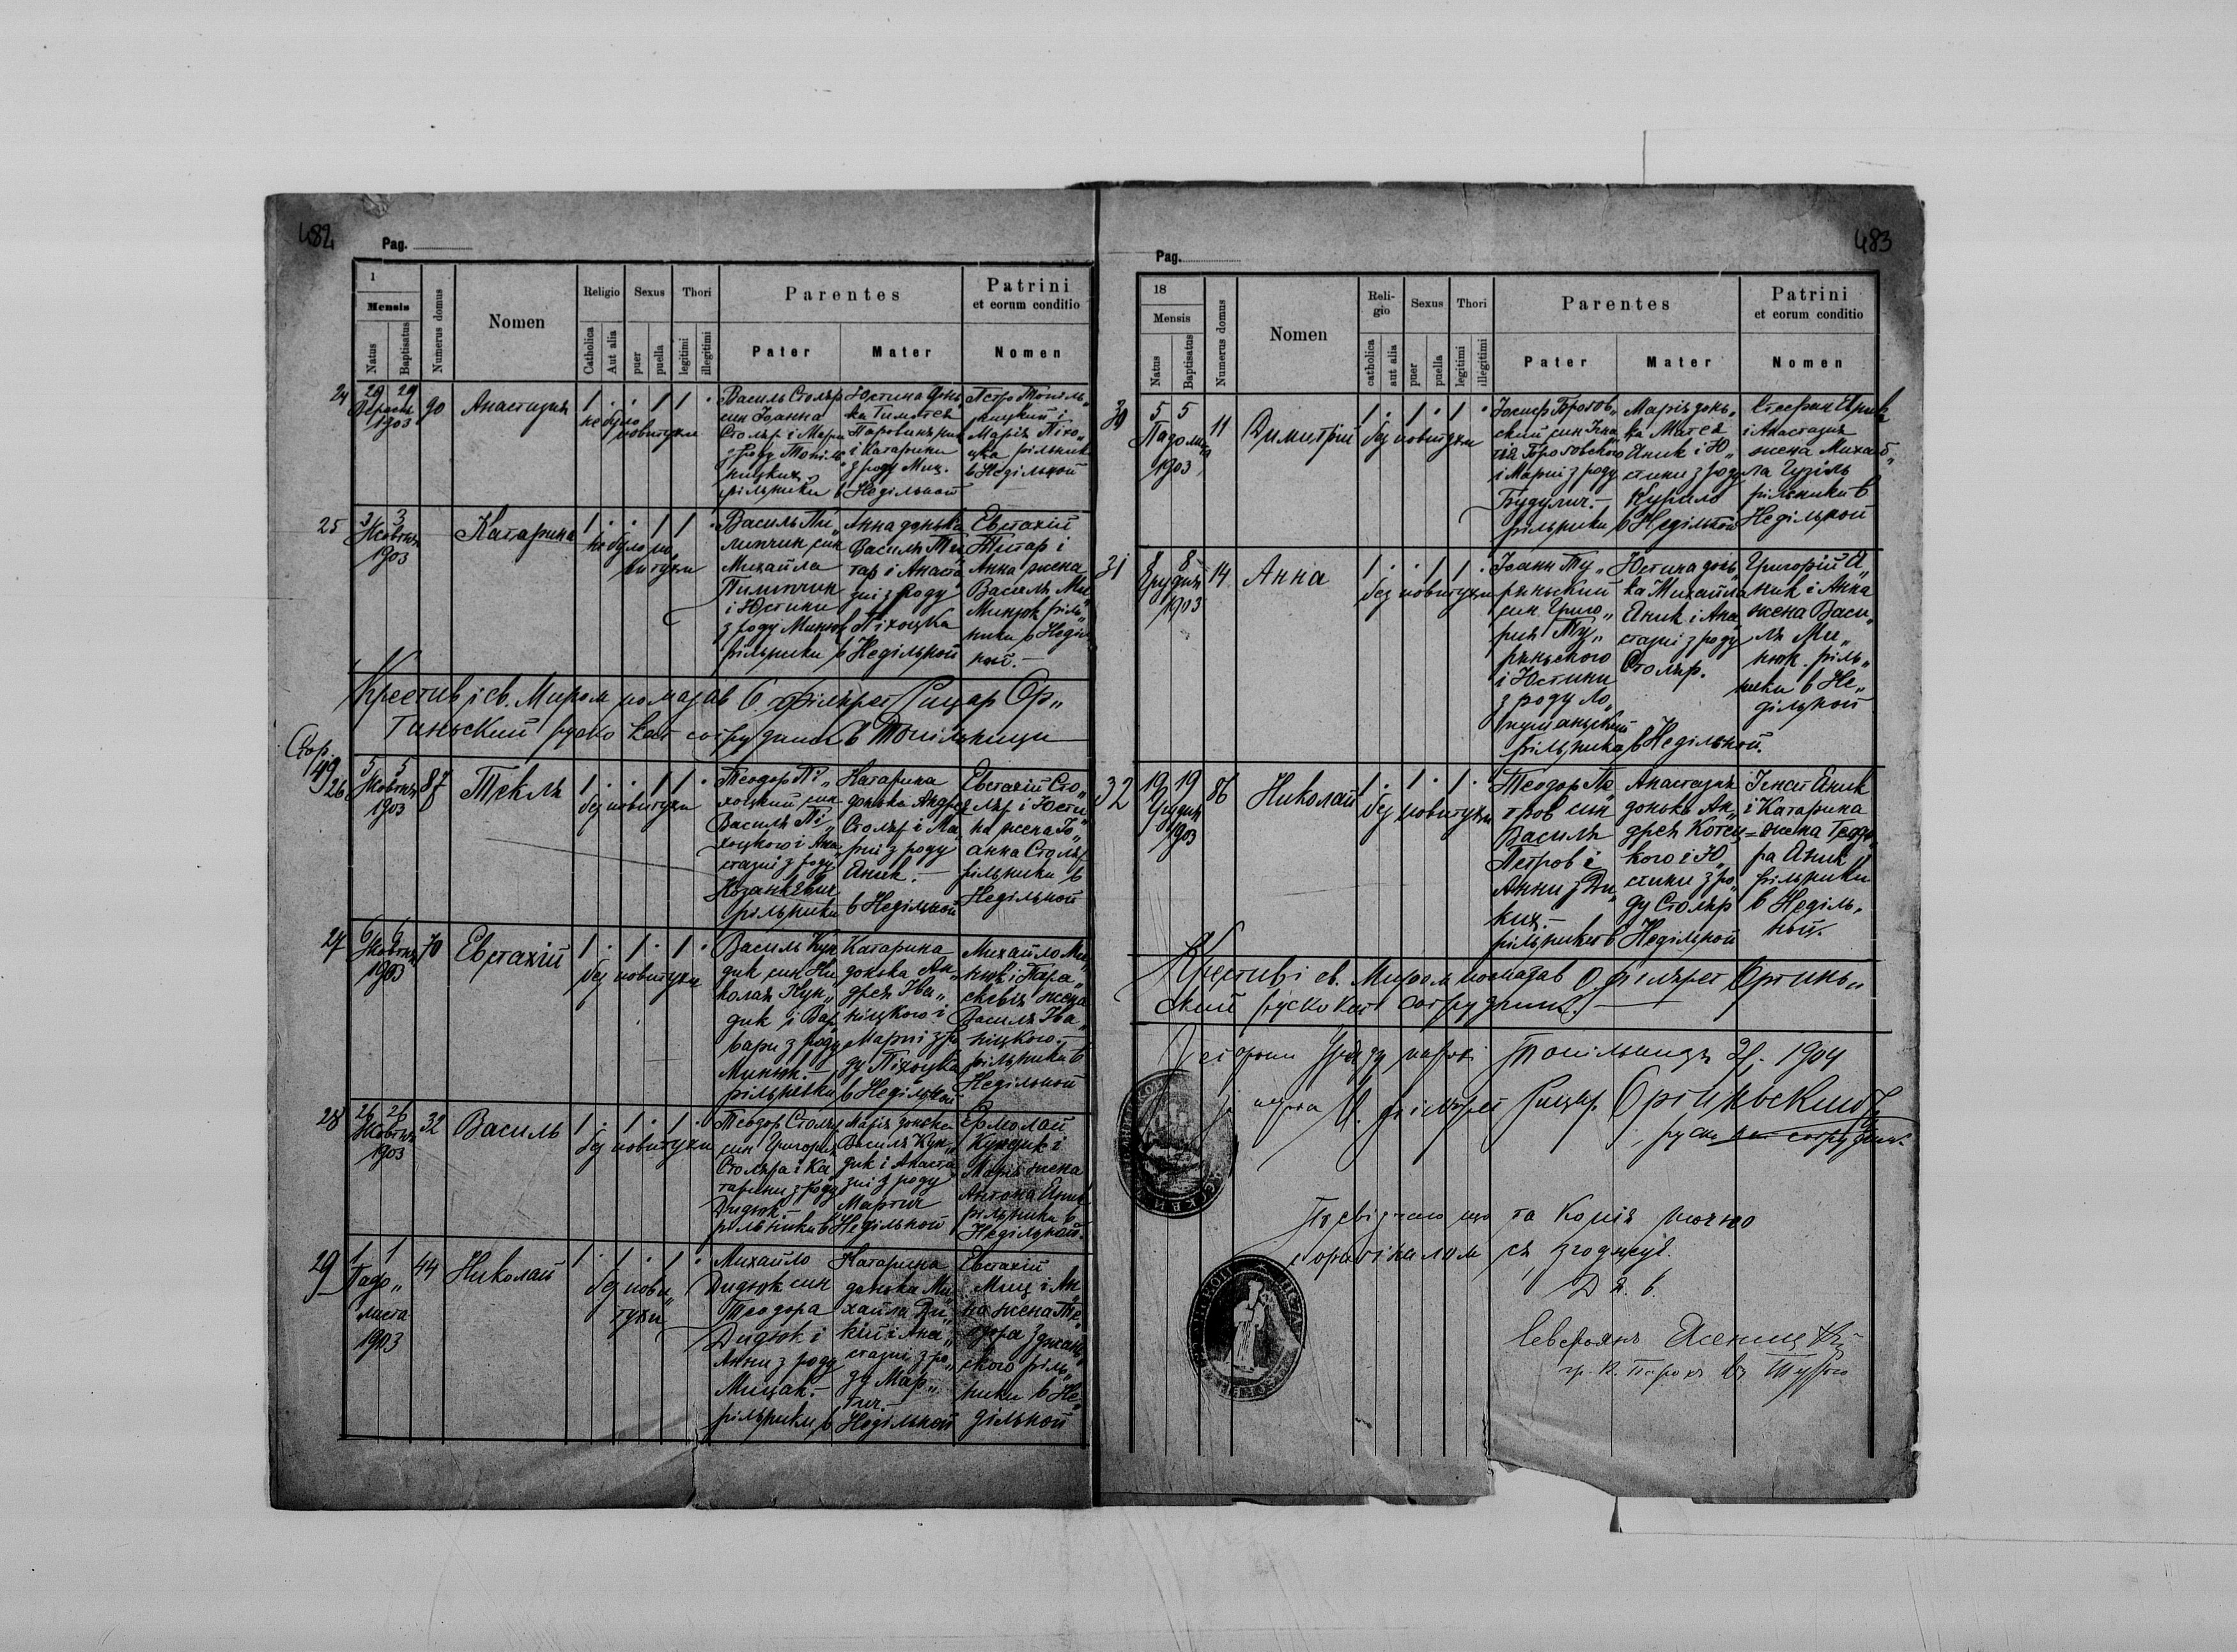 482
Pag.
1
Mensis
Natus
Baptisatus
Numerus domus
Nomen
Religio
Catholica
Aut alia
Sexus
puer
puella
Thori
legitimi
illegitimi
Parentes
Pater
Mater
Patrini
et eorum conditio
Nomen
24
29 29
1903
90
Анастазия
1 . . 1 1 .
не було
повитухи
Василь Столяр
син Іоанна
Столяр і Марії
з роду Топіль
ницких
рільники в
Юстина донь
ка Тимотея
і Катарини
з роду Миц.
Недільной
Петро Топіль„
ницкий і
Марія Піхо„
цка рільники
в Недільной
25
3 3
Жовтня
1903
Катарина
1 . . 1 1 .
не було по
витухи
Василь Пи„
липчик син
Михайла
Пилипчик
і Юстини
з роду Минюк
рільники в
Анна донька
Василя Ти
тар і Анаста
зиі з роду
Піхоцка
Недільной
Евстахій
Титар і
Анна жена
Василя Ми„
Минюк рiль„
ники в Неділь
ной.—
Крестив і св. Миром помазав О. Філярет Рицар Ор„
тиньский руско кат сотрудник в Топільници
Стор.
49
26
5 5
Жовтня
1903
87
Текля
1 . . 1 1 .
без повитухи
Теодор Пі„
хоцкий син
Василя Пі„
хоцкого і Ана
стазиі з роду
рільники
Катарина
донька Андрея
Столяр і Ма
риі з роду
Яник.—
в Недільной
Евстахій Сто„
ляр і Юсти„
на жена Іо„
анна Столяр
рільники в
Недільной
27
6 6
Жовтня
1903
70
Евстахій
1 . 1 . 1 .
без повитухи
Василь Кун
дик син Ни
колая Кун„
дик і Вар
вари з роду
Минюк.—
рільники
Катарина
донька Ан„
дрея Ива„
ніцкого і
Мариі з ро
ду Піхоцка
в Недільной
Михайло Ми„
нюк і Пара„
скевія жена
Василя Ива„
ніцкого.—
рільники в
Недільной
28
26 26
Жовтня
1903
32
Василь
1 . 1 . 1 .
без повитухи
Теодор Столяр
син Григорія
Столяра і Ка
тарини з роду
Дидюк.—
рільники в
Марія донька
Василя Кун„
дик і Анаста
зиі з роду
Мартич
Недільной
Ермолай
Кундик і
Марія жена
Антона Яник
рільники в
Недільной.
29
1 1
Падо„
листа
1903
44
Николай
1 . 1 . 1 .
без пови„
тухи
Михайло
Дидюк син
Теодора
Дидюк і
Анни з роду
Мицак.—
рільники в
Катарина
донька Ми
хайла Ди„
кий і Ана„
стазиі з ро„
ду Мар„
тич.—
Недільной
Евстахій
Миц і Ан„
на жена Те„
одора
ского рiль„
ники в Не„
дільной
483
Pag.
18
Mensis
Natus
Baptisatus
Numerus domus
Nomen
Reli-
gio
catholica
aut alia
Sexus
puer
puella
Thori
legitimi
illegitimi
Parentes
Pater
Mater
Patrini
et eorum conditio
Nomen
30
5 5
Падолиста
1903
11
Димитрій
1 . 1 . 1 .
без повитухи
Йосиф Торгов„
ский син Игна
тія
і Мариі з роду
рільники
Марія донь„
ка Матея
Яник і Ю„
стини з роду
Курило
в Недільной
Стефан Яник
і Анастазия
жена Михай„
ла Гузіль
рільники в
Недільной
31
8 8
Грудня
1903
14
Анна
1 . . 1 1 .
без повитухи
Іоанн Ту„
ряньский
син Григо„
рия Ту„
ряньского
і Юстини
з роду Ло„
рільники
Юстина донь„
ка Михайла
Яник і Ана„
стазиі з роду
Столяр.
в Недільной.
Григорій Я„
ник і Анна
жена Васи„
ля Ми„
нюк. рiль„
ники в Не„
дільной
32
19 19
Грудня
1903
86
Николай
1 . 1 . 1 .
без повитухи
Теодор Пе
тров син
Василя
Петров і
Анни з Ди„
ких.—
рільники в
Анастазия
донька Ан„
дрея Коцец=
кого і Ю„
стини з ро„
ду Столяр
Недільной
Ігнат Яник
і Катарина
жена Теодо„
ра Яник
рільники
в Неділь„
ной.
Крестив і св. Миром помазав О. Філярет Ортинь„
ский руско кат сотрудник.—
Уряду парохі Топільниця 2/I. 1904
О. Філярет Рицар Ортиньский
руско кат сотрудник
Посвідчаю що та копія точно
з оригіналом ся згоджує.
Северіян Ясеницкій
гр. к. Парох въ Турю